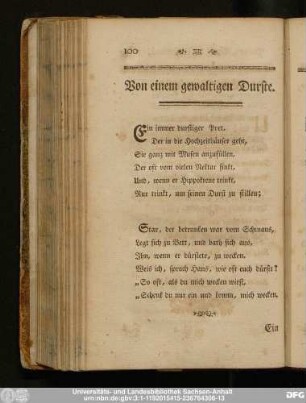 100
Von einem gewaltigen Durste.
Ein immer durstiger Poet,
Der in die Hochzeithäuser geht,
Sie ganz mit Musen anzufüllen,
Der oft vom vielen Nektar sinkt,
Und, wenn er Hippokrene trinkt,
Nur trinkt, um seinen Durst zu stillen;
Star, der betrunken war vom Schmaus,
Legt sich zu Bett, und bath sich aus,
Ihn, wenn er dürstete, zu wecken.
Weis ich, sprach Hans, wie oft euch dürst?
„So oft, als du mich wecken wirst,
„Schenk du nur ein und komm, mich wecken.
Ein
Universitäts- und Landesbibliothek Sachsen-Anhalt
urn:nbn:de:gbv:3:1-1192015415-236784356-13
DFG